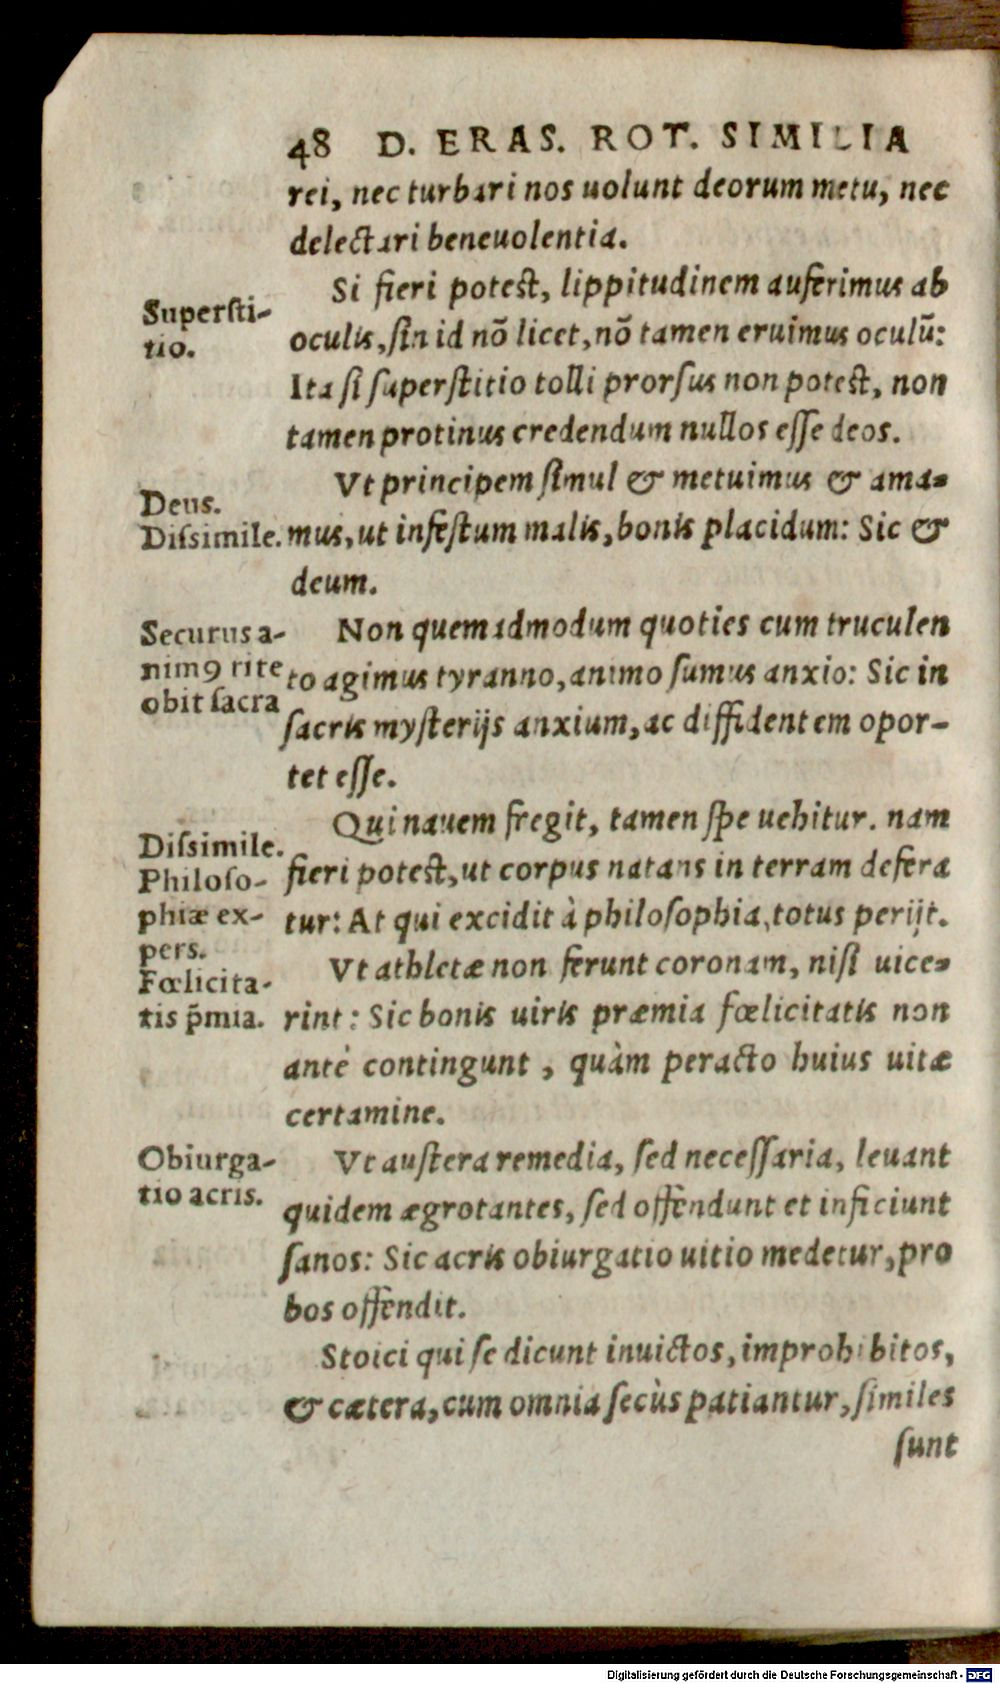 48 D. ERAS. ROT. SIMILIA
rei, nec turbari nos uolunt deorum metu, nec
delectari beneuolentia.
Si fieri potest, lippitudinem auferimus ab
Supersti-
oculis, sin id nō licet, nō tamen eruimus oculū:
tio.
Ita si superstitio tolli prorsus non potest, non
tamen protinus credendum nullos esse deos.
Vt principem simul & metuimus & ama-
Deus.
Dissimile. mus, ut infestum malis, bonis placidum: Sic &
deum.
Securus a- Non quemadmodum quoties cum truculen
nimꝰ rite to agimus tyranno, animo sumus anxio: Sic in
obit sacra sacris mysterijs anxium, ac diffidentem opor-
tet esse.
Qui nauem fregit, tamen spe uehitur. nam
Dissimile. fieri potest, ut corpus natans in terram defera
Philoso-
phiæ ex- tur: At qui excidit à philosophia, totus perijt.
pers.
Vt athletæ non ferunt coronam, nisi uice-
Fœlicita-
tis p̄mia. rint: Sic bonis uiris præmia fœlicitatis non
antè contingunt, quàm peracto huius uitæ
certamine.
Obiurga- Vt austera remedia, sed necessaria, leuant
tio acris. quidem ægrotantes, sed offendunt et inficiunt
sanos: Sic acris obiurgatio uitio medetur, pro
bos offendit.
Stoici qui se dicunt inuictos, improhibitos,
& cætera, cum omnia secùs patiantur, similes
sunt
Digitalisierung gefördert durch die Deutsche Forschungsgemeinschaft - DFG